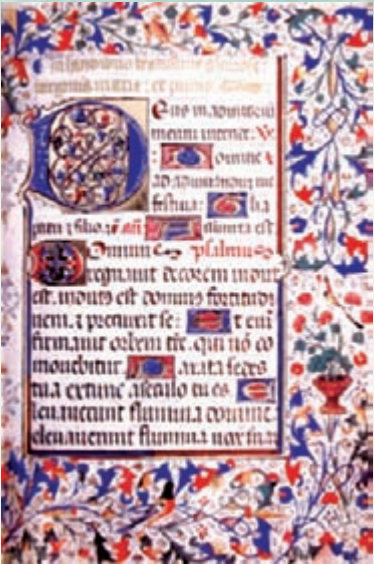 virginis marie : et primo
Deus in adiutoriū
meum intende. R
: Domine
ad adiuuandum me
festina: Glia
patri z filio. z añ Assumpta est
Dominus psalmus
regnauit decorem indut
est. induts est dominus fortitudi
nem. z precinxit se: Et eni
firmauit orbem tre. qui nō co
mouebitur Parata sedes
tua extunc aseculo tu es E
leuauerunt flumina domine
eleuauerunt flumina uocē sua